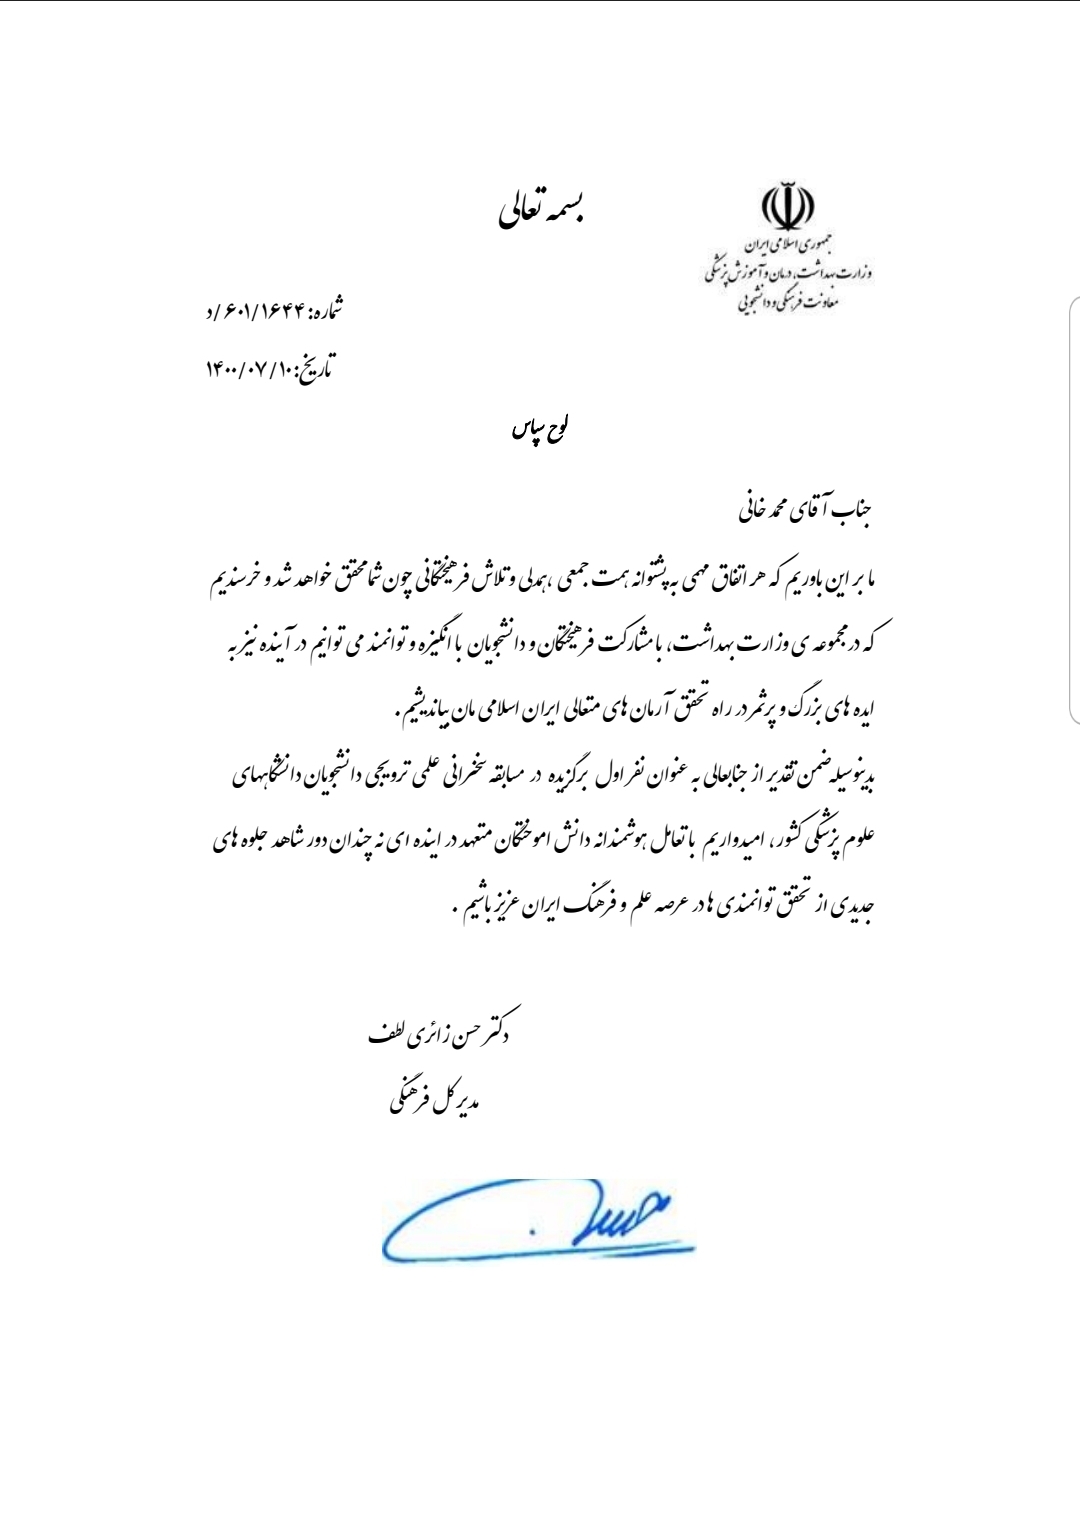 بسمه تعالی
جمهوری اسلامی ایران
وزارت بهداشت، درمان و آموزش پزشکی
معاونت فرهنگی و دانشجویی
شماره: ۶۰۱/۱۶۴۴/د
تاریخ: ۱۴۰۰/۰۷/۱۰
لوح سپاس
جناب آقای محمد خانی
ما بر این باوریم که هر اتفاق مهمی به پشتوانه همت جمعی ،همدلی و تلاش فرهیختگانی چون شما محقق خواهد شد و خرسندیم
که در مجموعه ی وزارت بهداشت، با مشارکت فرهیختگان و دانشجویان با انگیزه و توانمند می توانیم در آینده نیز به
ایده های بزرگ و پرثمر در راه تحقق آرمان های متعالی ایران اسلامی مان بیاندیشیم.
بدینوسیله ضمن تقدیر از جنابعالی به عنوان نفر اول برگزیده در مسابقه سخنرانی علمی ترویجی دانشجویان دانشگاههای
علوم پزشکی کشور، امیدواریم با تعامل هوشمندانه دانش اموختگان متعهد در اینده ای نه چندان دور شاهد جلوه های
جدیدی از تحقق توانمندی ها در عرصه علم و فرهنگ ایران عزیز باشیم .
دکتر حسن زائری لطف
مدیر کل فرهنگی